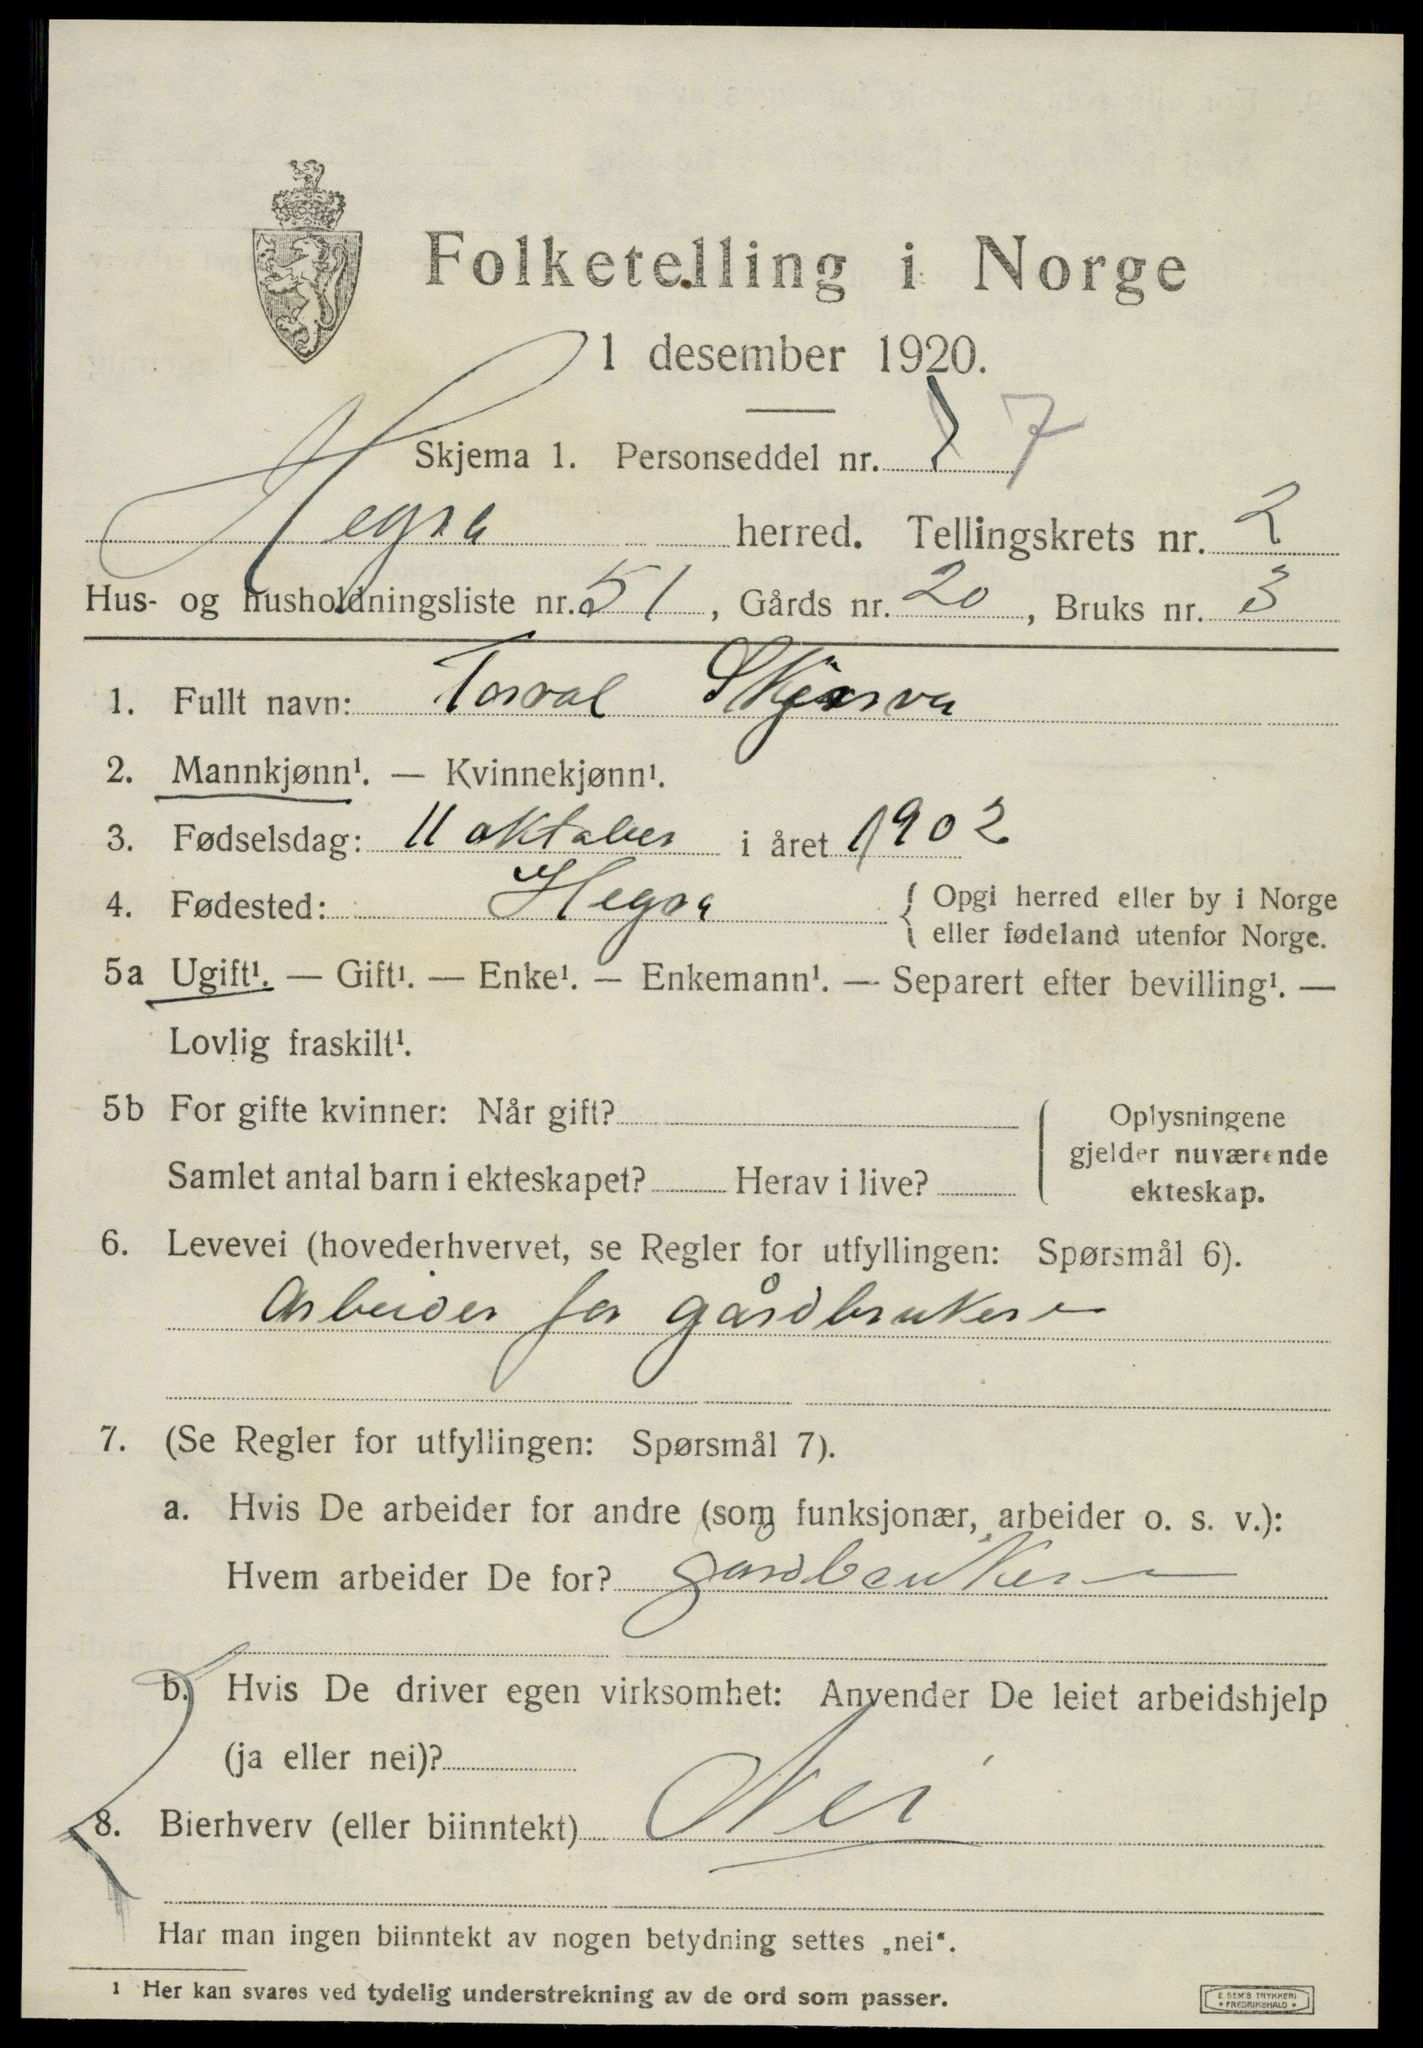 Folketelling i Norge
1 desember 1920.
Skjema 1. Personseddel nr. 7
Hegra herred. Tellingskrets nr. 2
Hus- og husholdningsliste nr. 51, Gårds nr. 20, Bruks nr. 3
1. Fullt navn: Torval
2. Mannkjønn¹. — Kvinnekjønn¹.
3. Fødselsdag: 11 oktober i året 1902
4. Fødested: Hegra { Opgi herred eller by i Norge
eller fødeland utenfor Norge.
5a Ugift¹. — Gift¹. — Enke¹. — Enkemann¹. — Separert efter bevilling¹. —
Lovlig fraskilt¹.
5b For gifte kvinner: Når gift?
Samlet antal barn i ekteskapet? Herav i live?
Oplysningene
gjelder nuværende
ekteskap.
6. Levevei (hovederhvervet, se Regler for utfyllingen: Spørsmål 6).
Arbeider for gårdbruker
7. (Se Regler for utfyllingen: Spørsmål 7).
a. Hvis De arbeider for andre (som funksjonær, arbeider o. s. v.):
Hvem arbeider De for? gårdbruker
b. Hvis De driver egen virksomhet: Anvender De leiet arbeidshjelp
(ja eller nei)?
8. Bierhverv (eller biinntekt) Nei
Har man ingen biinntekt av nogen betydning settes „nei“.
¹ Her kan svares ved tydelig understrekning av de ord som passer.
E. SEM'S TRYKKERI
• FREDRIKSHALD •